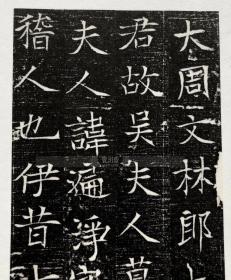 大周文林郎
君故吴夫人
夫人諱遍淨
稽人也伊昔